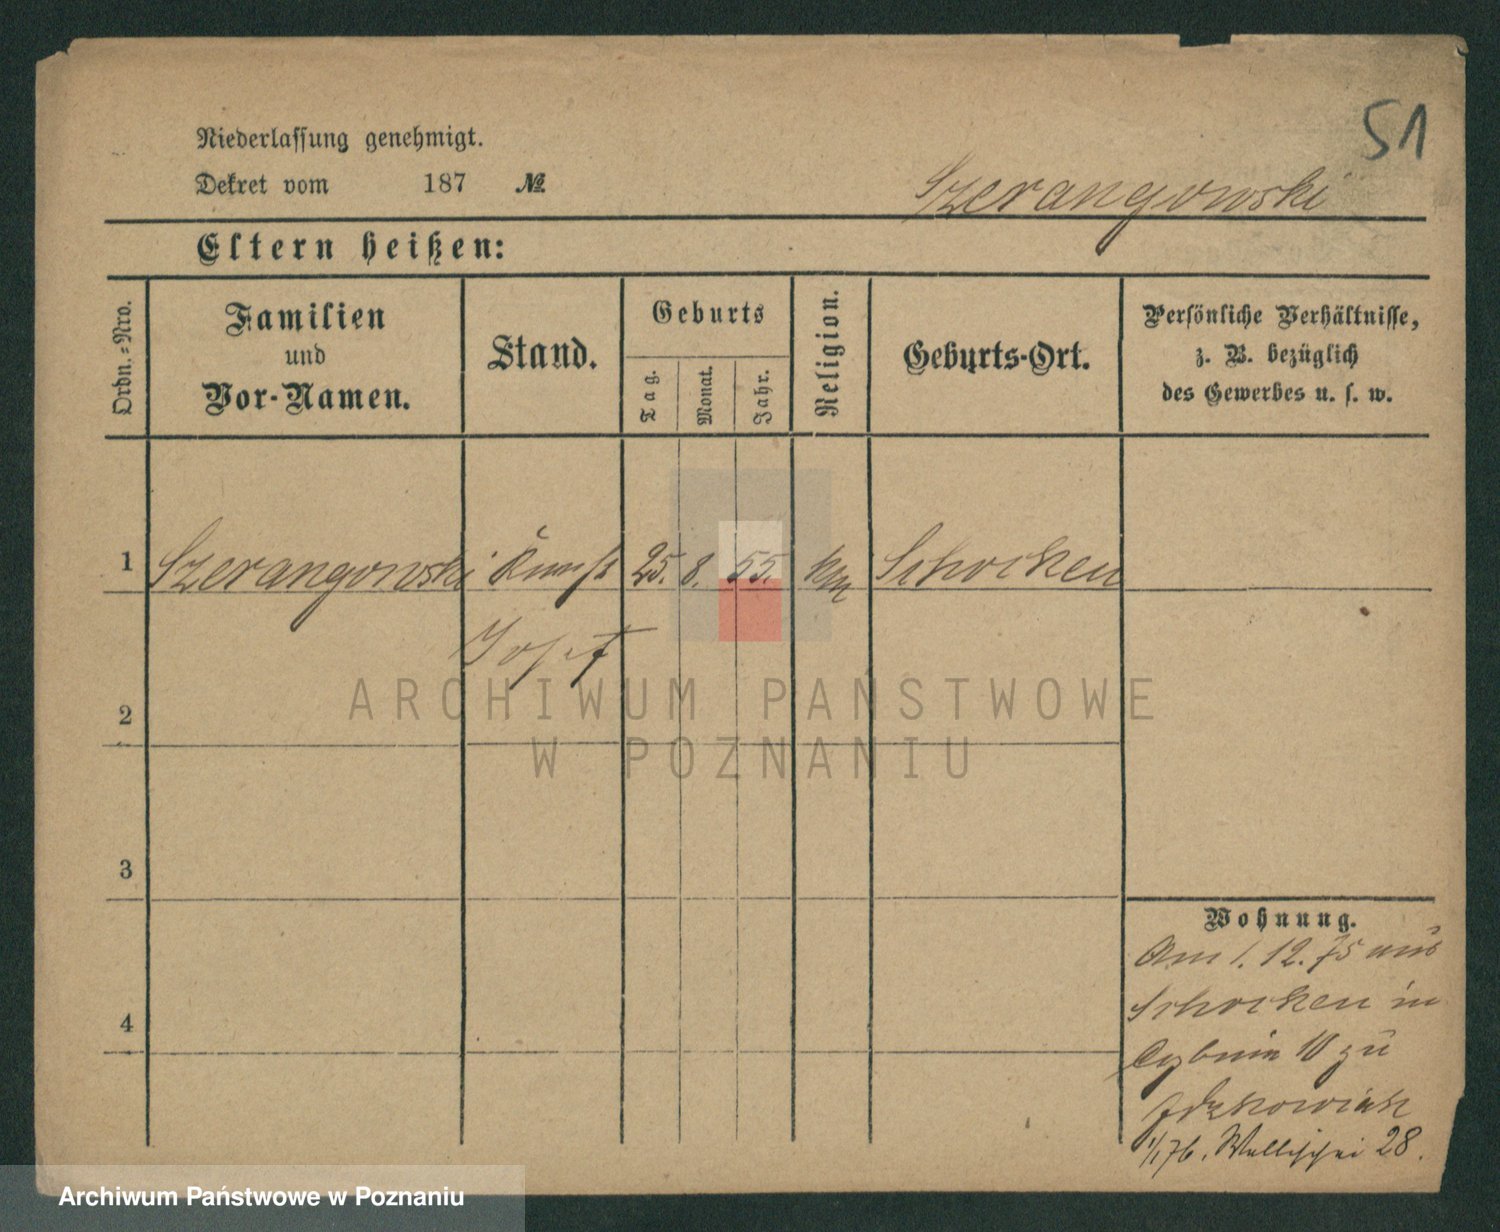 51
Niederlassung genehmigt.
Dekret vom 187 №
Szerangowski
Eltern heißen:
Ordn.=Nro.
Familien
und
Vor-Namen.
Stand.
Geburts
Tag.
Monat.
Jahr.
Religion.
Geburts-Ort.
Persönliche Verhältnisse,
z. B. bezüglich
des Gewerbes u. s. w.
1 Szerangowski 25. 8. 55. Schocken
Josef
2
3
4
Wohnung.
Am 1. 12. 75 aus
Schocken in
10 zu
1/1 76. Wallischei 28.
ARCHIWUM PAŃSTWOWE
W POZNANIU
Archiwum Państwowe w Poznaniu